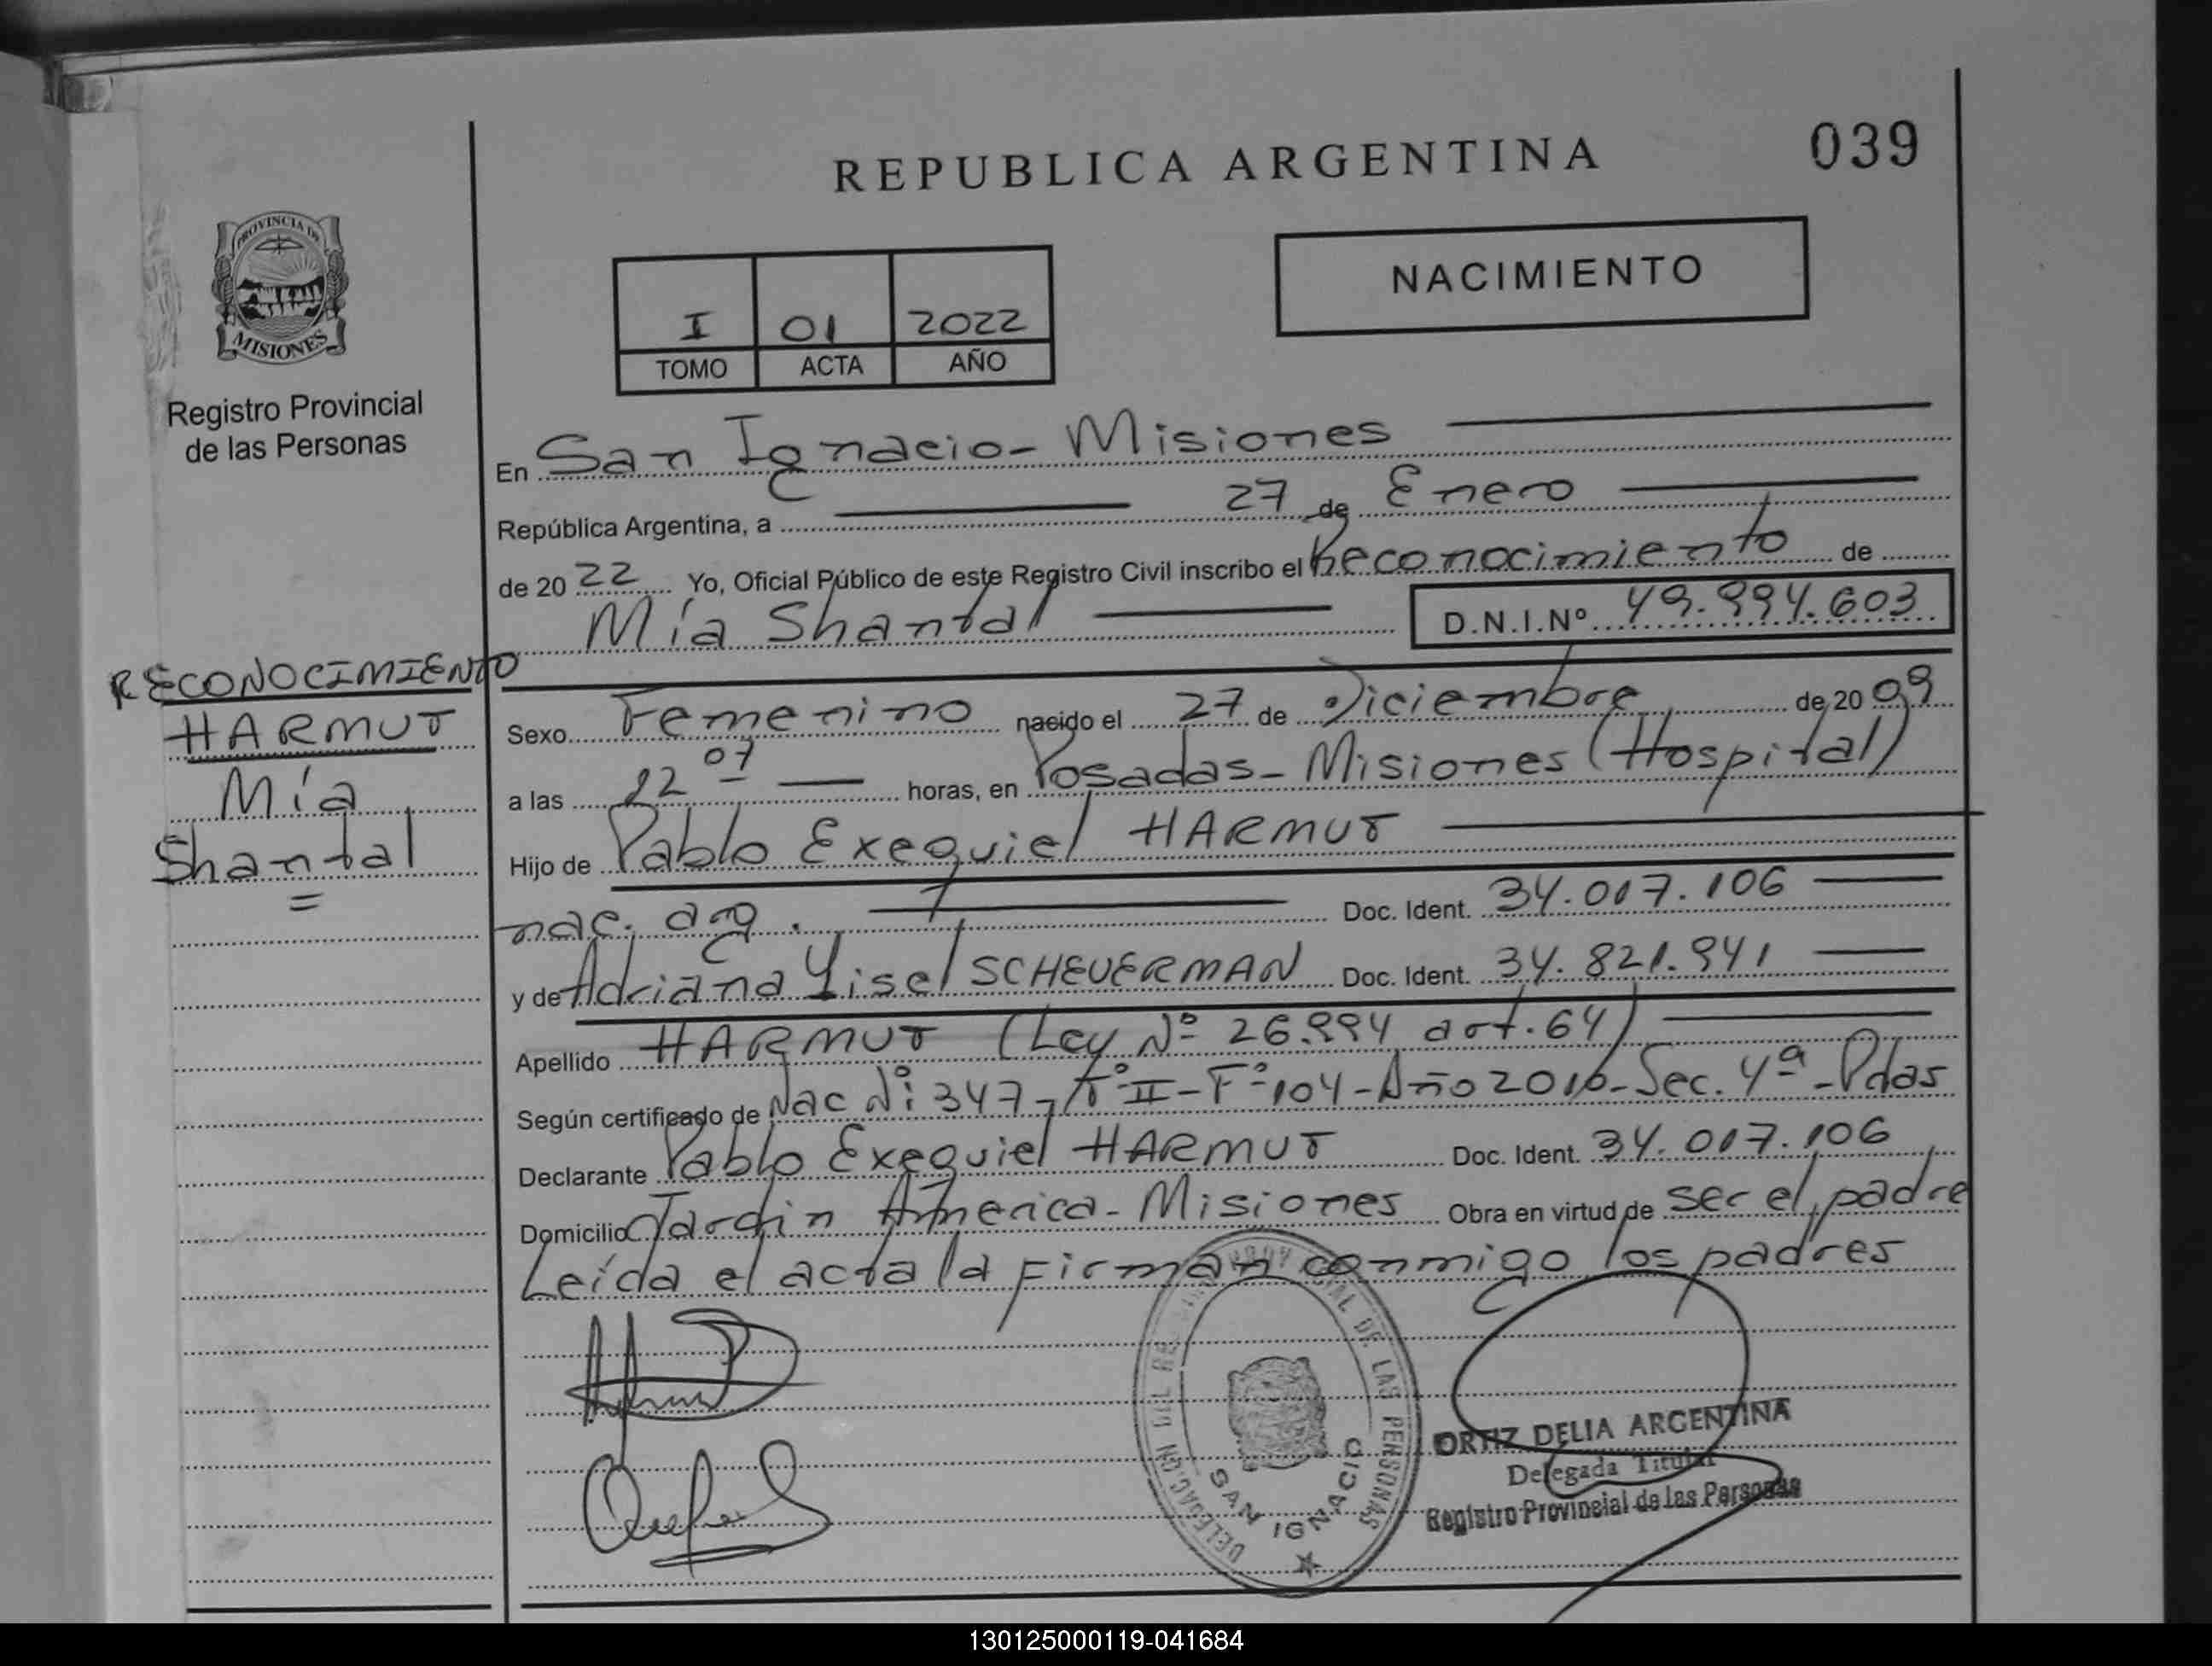 REPUBLICA ARGENTINA
039
PROVINCIA DE
MISIONES
Registro Provincial
de las Personas
NACIMIENTO
I 01 2022
TOMO ACTA AÑO
En San Ignacio - Misiones
República Argentina, a 27 de Enero
de 20 22 Yo, Oficial Público de este Registro Civil inscribo el Reconocimiento de
Mía Shantal D.N.I.Nº 49.994.603
RECONOCIMIENTO
HARMUT
Mía
Shantal
Sexo Femenino nacido el 27 de Diciembre de 20 09
a las 22 07 horas, en Posadas - Misiones (Hospital)
Hijo de Pablo Exequiel HARMUT
nac. arg. Doc. Ident. 34.017.106
y de Adriana Yisel SCHEUERMAN Doc. Ident. 34.821.941
Apellido HARMUT (Ley Nº 26.994 art. 64)
Según certificado de Nac Nº: 347 - Tº II - Fº 104 - Año 2010 - Sec. 4ª - Pdas
Declarante Pablo Exequiel HARMUT Doc. Ident. 34.017.106
Domicilio Jardín América - Misiones Obra en virtud de ser el padre
Leída el acta la firman conmigo los padres
DE LAS PERSONAS
SAN IGNACIO
ORTIZ DELIA ARGENTINA
Delegada Titular
Registro Provincial de las Personas
130125000119-041684